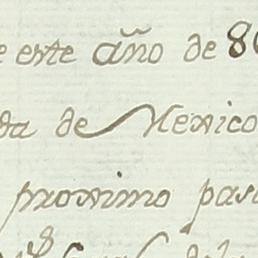 e este año de 80
da de Mexico
proximo pas